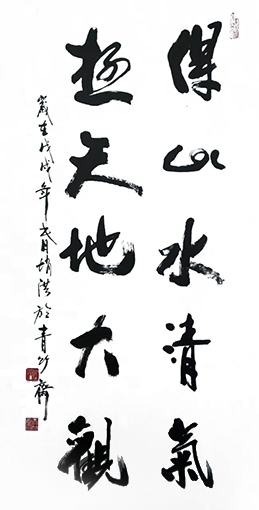 得山水清氣
極天地大觀
歲在戊戌年月洪於青齋